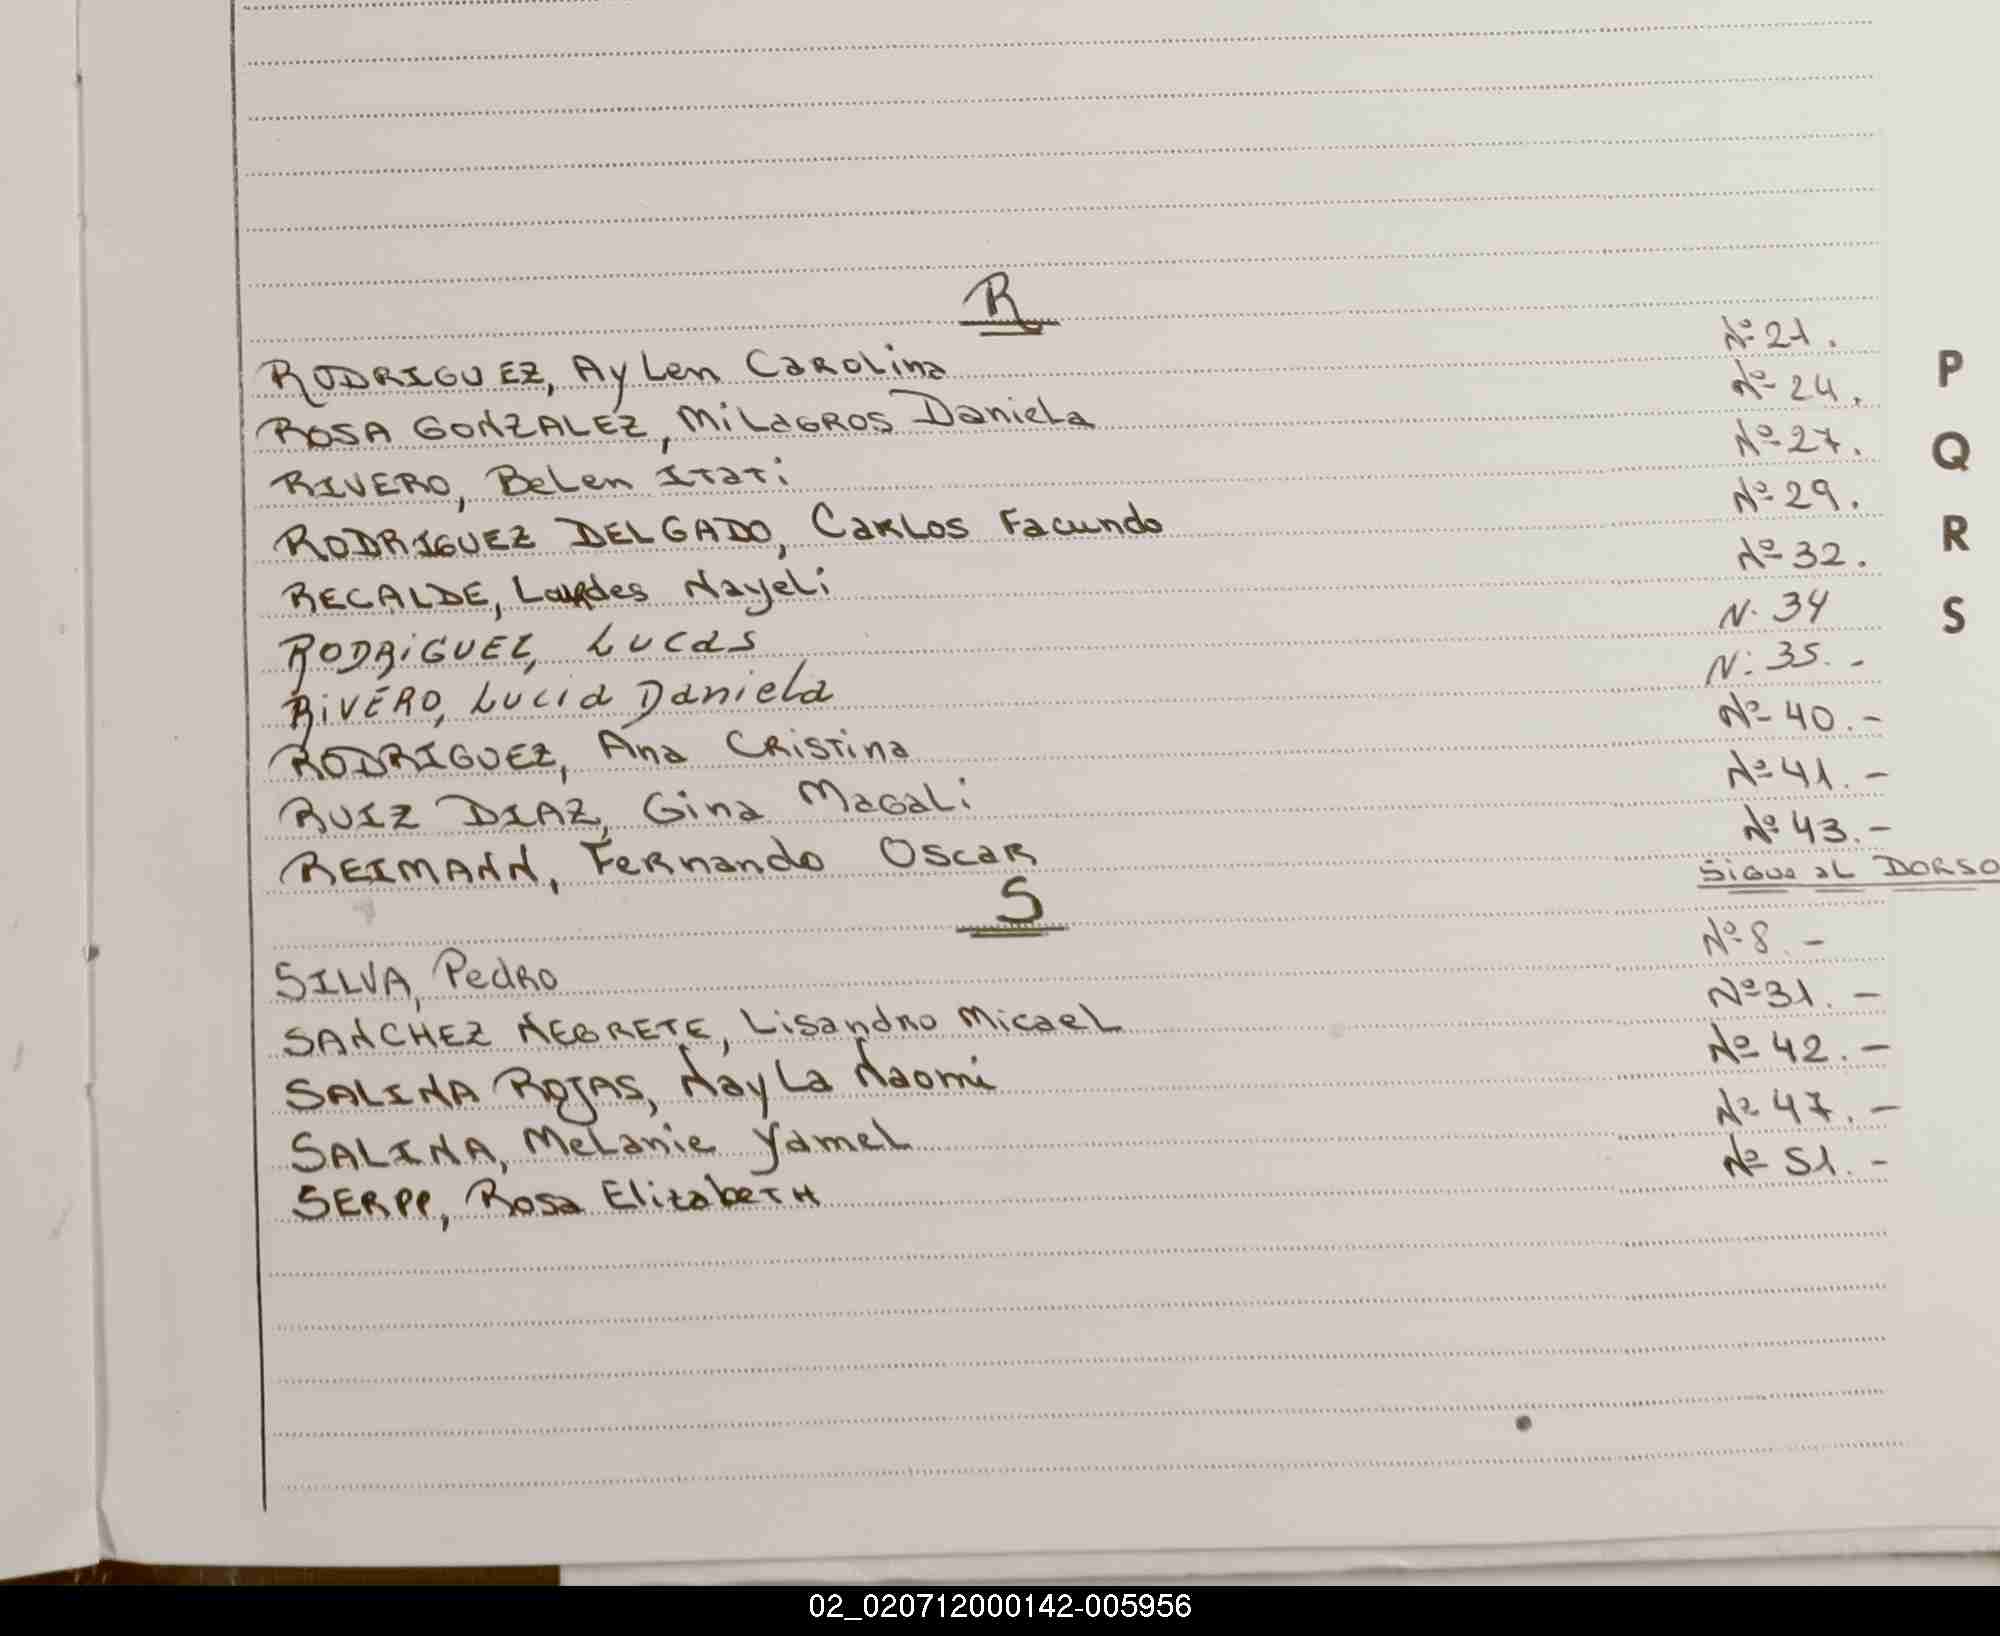 R
RODRIGUEZ, Aylen Carolina Nº 21.
ROSA GONZALEZ, Milagros Daniela Nº 24.
P
RIVERO, Belen Itati Nº 27.
Q
RODRIGUEZ DELGADO, Carlos Facundo Nº 29.
R
RECALDE, Lourdes Nayeli Nº 32.
RODRiGUEZ, Lucas N. 34
S
RiVERO, Lucia Daniela N: 35.-
RODRIGUEZ, Ana Cristina Nº 40.-
RUIZ DIAZ, Gina Magali Nº 41.-
REIMANN, Fernando Oscar Nº 43.-
Sigue al DORSO
S
SILVA, Pedro Nº 8.-
SANCHEZ NEGRETE, Lisandro Micael Nº 31.-
SALINA ROJAS, Nayla Naomi Nº 42.-
SALINA, Melanie Yamel Nº 47.-
SERPP, Rosa Elizabeth Nº 51.-
02_020712000142-005956